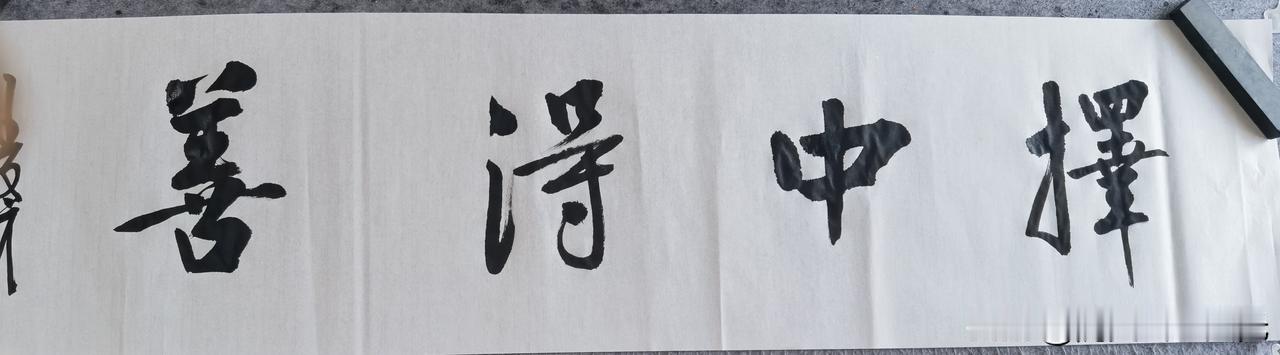 擇中得善